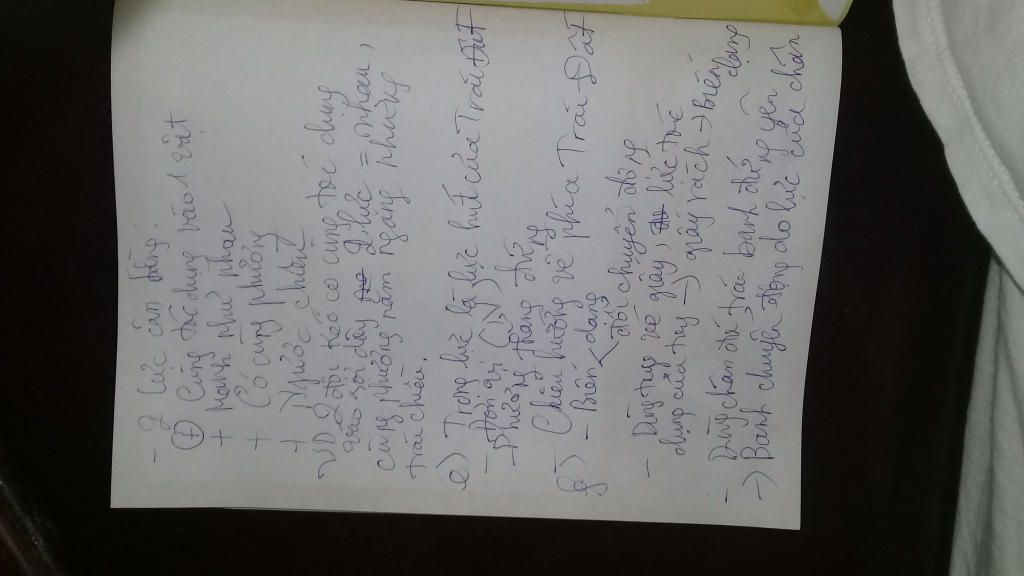 - 2 lực cân bằng.
+ Cùng tác dụng vào 1 vật
+ Mạnh như nhau
+ Có cùng phương
+ Ngược chiều
VD 2 đội kéo co cùng tác dụng
vào sợi dây 2 lực = nhau,
cùng phương nằm ngang nhưng
trái chiều.
e) Trọng lực là lực hút của Trái Đất
- Đơn vị (N)
→ Phương thẳng đứng
Chiều hướng về phía Trái Đất
g) - Biến dạng
đổi chuyển động
- Dùng tay xé giấy, lực tác
dụng của tay → giấy rách → Biến dạng
- Dùng chân đá trái banh đứng yên
→ Banh chuyển động do lực của chân